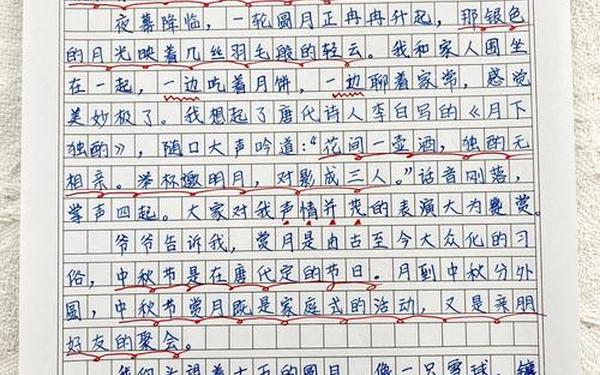 夜幕降临，一轮圆月正冉冉升起，那银色
的月光映着几丝羽毛般的轻云。我和家人围坐
在一起，一边吃着月饼，一边聊着家常，感觉
美妙极了。我想起了唐代诗人李白写的《月下
独酌》，随口大声吟道：“花间一壶酒，独酌无
相亲。举杯邀明月，对影成三人。”话音刚落，
掌声四起。大家对我声情并茂的表演大为赞赏。
爷爷告诉我，赏月是由古至今大众化的习
俗，中秋节是在唐代定的节日。月到中秋分外
圆，中秋节赏月既是家庭式的活动，又是亲朋
好友的聚会。
我们头望着十五的圆月，像一只雪球，镶